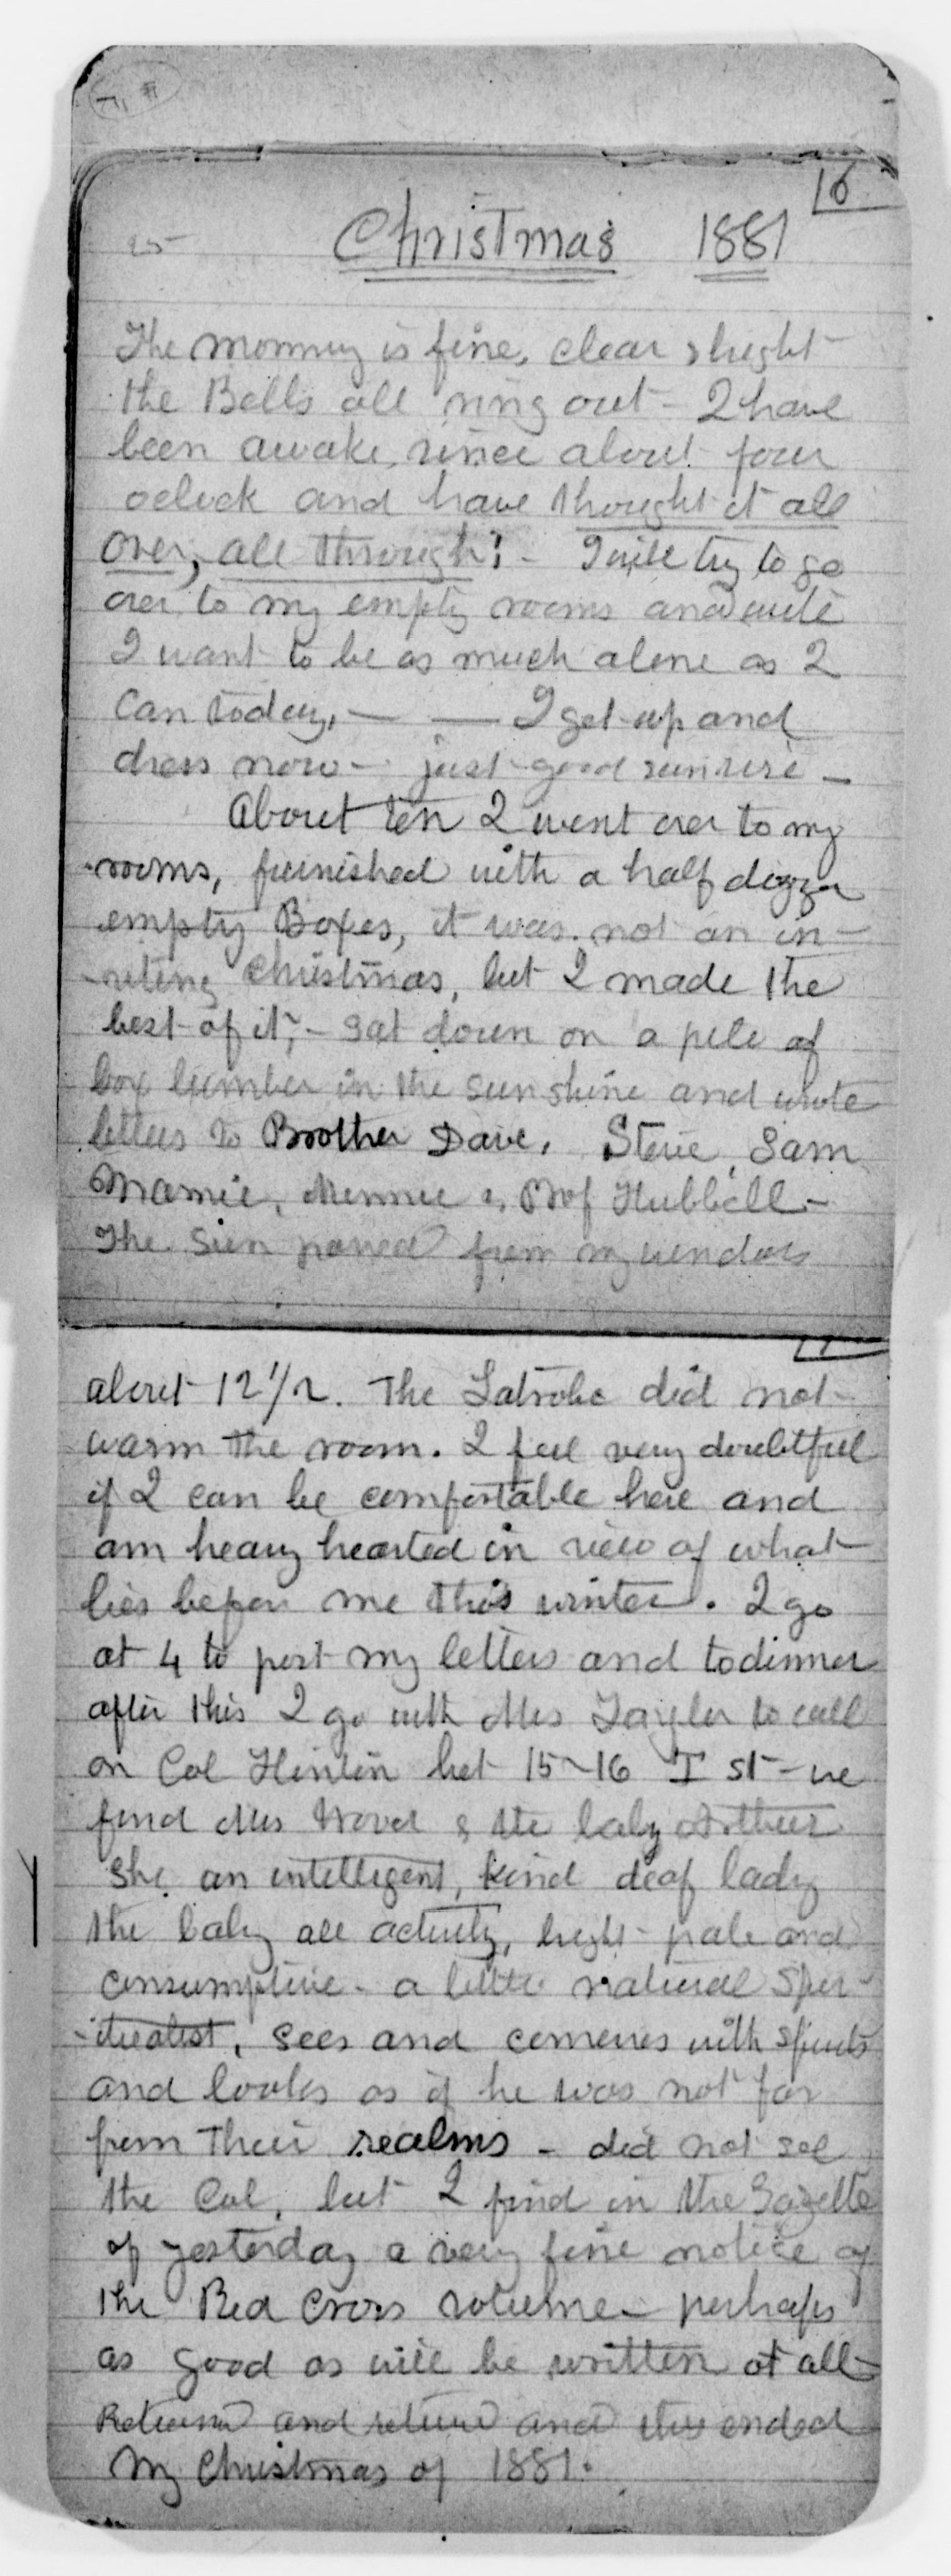 16
25 Christmas 1881
The morning is fine, clear & bright
the Bells all ring out - I have
been awake, since about four
oclock and have thought it all
over, all through! - I will try to go
over to my empty rooms and write
I want to be as much alone as I
can today, — — I get up and
dress now - just good sunrise -
About ten I went over to my
rooms, furnished with a half dozzen
empty Boxes, it was not an in-
-viting Christmas, but I made the
best of it, - sat down on a pile of
box lumber in the sunshine and wrote
letters to Brother Dave, Steve, Sam
Mamie, Minnie &, Prof Hubbell -
The Sun passed from my windows
17
about 12 1/2. The Latrobe did not
warm the room. I feel very doubtful
if I can be comfortable here and
am heavy hearted in view of what
lies before me this winter. I go
at 4 to post my letters and to dinner
after this I go with Mrs Taylor to call
on Col Hinton bet 15-16 I st - we
find Mrs Wood & the baby Arthur
she, an intelligent, kind deaf lady
the baby all activity, bright - pale and
consumptive - a little natural Spir-
-itualist, sees and converses with spirits
and looks as if he was not far
from their realms - did not see
the Col, but I find in the Gazette
of yesterday a very fine notice of
the Red Cross volume - perhaps
as good as will be written at all -
Return and retire and thus ended
My Christmas of 1881.